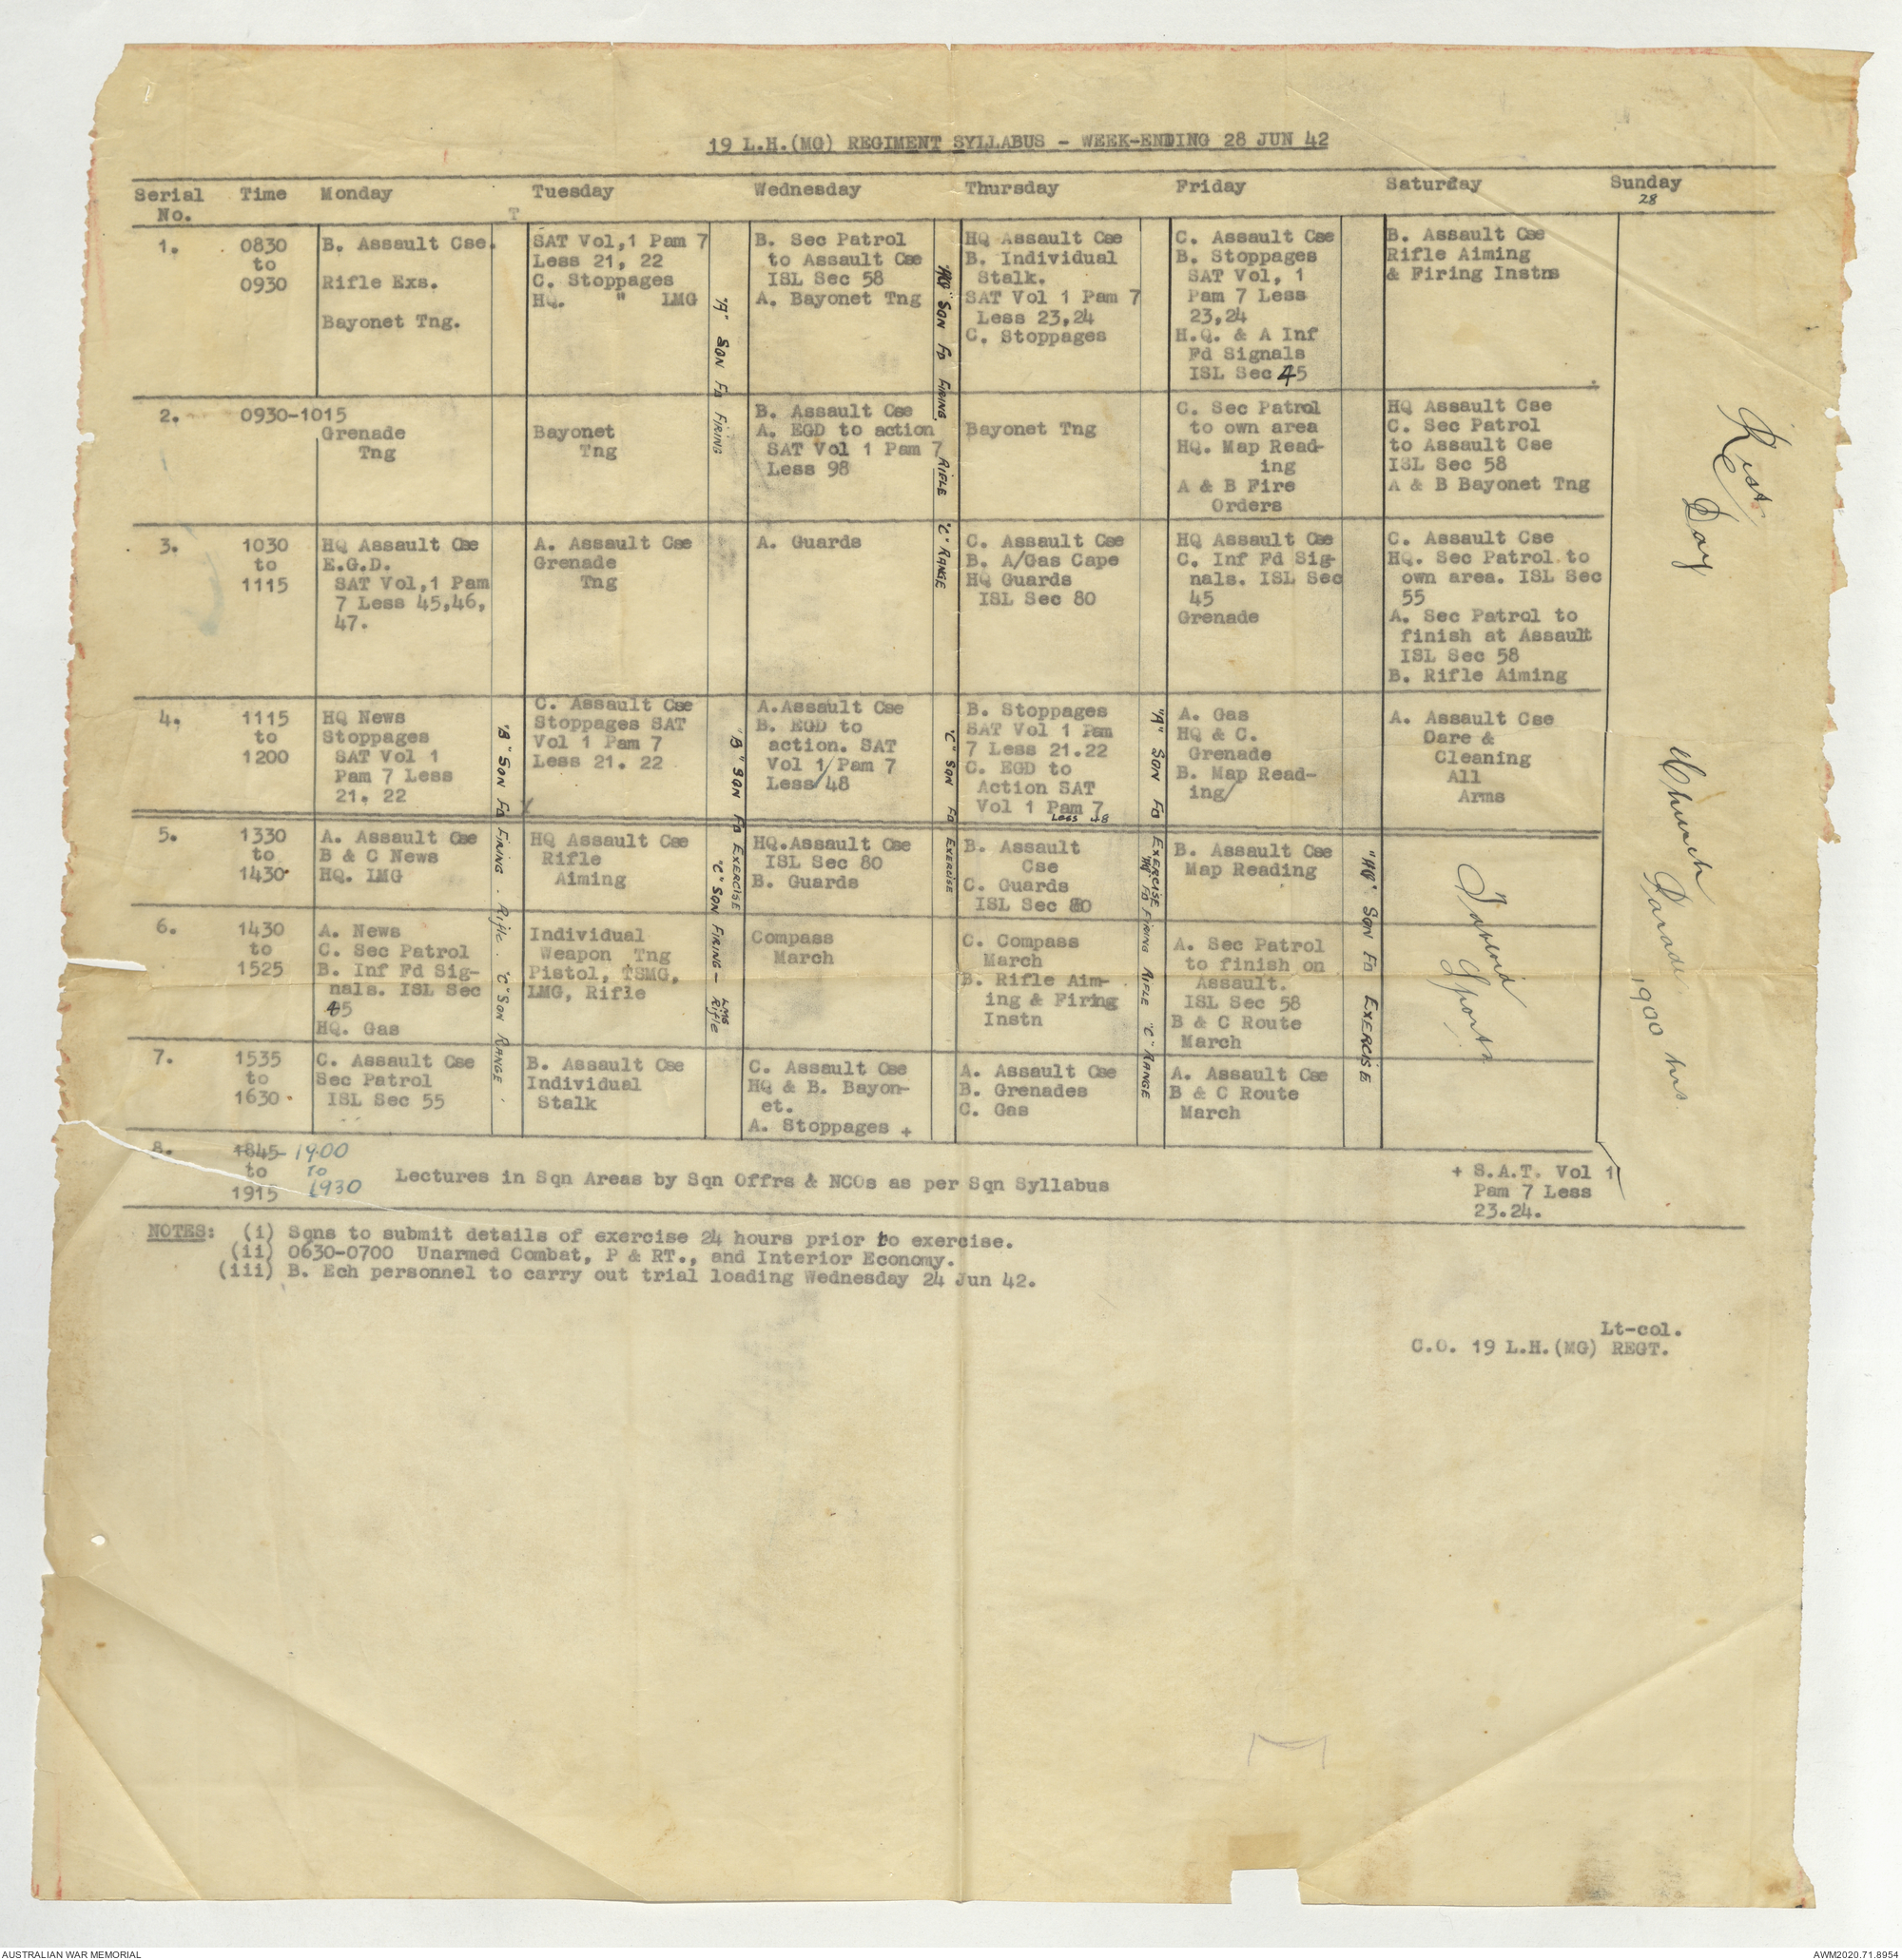 19 L.H.(MG) REGIMENT SYLLABUS - WEEK-ENDING 28 JUN 42
Serial No.
Time
Monday
Tuesday
Wednesday
Thursday
Friday
Saturday
Sunday
28
T
1.
0830
to
0930
B. Assault Cse.
Rifle Exs.
Bayonet Tng.
SAT Vol,1 Pam 7
Less 21, 22
C. Stoppages
HQ. " LMG
"A" SQN FD FIRING
B. Sec Patrol
to Assault Cse
ISL Sec 58
A. Bayonet Tng
"HQ" SQN FD FIRING RIFLE "C" RANGE
HQ Assault Cse
B. Individual
Stalk.
SAT Vol 1 Pam 7
Less 23,24
C. Stoppages
C. Assault Cse
B. Stoppages
SAT Vol, 1
Pam 7 Less
23,24
H.Q. & A Inf
Fd Signals
ISL Sec 45
B. Assault Cse
Rifle Aiming
& Firing Instns
Rest Day
2.
0930-1015
Grenade
Tng
Bayonet
Tng
B. Assault Cse
A. EGD to action
SAT Vol 1 Pam 7
Less 98
Bayonet Tng
C. Sec Patrol
to own area
HQ. Map Read-
ing
A & B Fire
Orders
HQ Assault Cse
C. Sec Patrol
to Assault Cse
ISL Sec 58
A & B Bayonet Tng
3.
1030
to
1115
HQ Assault Cse
E.G.D.
SAT Vol,1 Pam
7 Less 45,46,
47.
A. Assault Cse
Grenade
Tng
A. Guards
C. Assault Cse
B. A/Gas Cape
HQ Guards
ISL Sec 80
HQ Assault Cse
C. Inf Fd Sig-
nals. ISL Sec
45
Grenade
C. Assault Cse
HQ. Sec Patrol to
own area. ISL Sec
55
A. Sec Patrol to
finish at Assault
ISL Sec 58
B. Rifle Aiming
4.
1115
to
1200
HQ News
Stoppages
SAT Vol 1
Pam 7 Less
21, 22
"B" SQN FD FIRING . Rifle . "C" SQN RANGE .
C. Assault Cse
Stoppages SAT
Vol 1 Pam 7
Less 21. 22
"B" SQN FD EXERCISE
"C" SQN FIRING - LMG Rifle
A.Assault Cse
B. EGD to
action. SAT
Vol 1/Pam 7
Less/48
"C" SQN FD EXERCISE
B. Stoppages
SAT Vol 1 Pam
7 Less 21.22
C. EGD to
Action SAT
Vol 1 Pam 7
Less 48
"A" SQN FD EXERCISE
"HQ" FD FIRING RIFLE "C" RANGE
A. Gas
HQ & C.
Grenade
B. Map Read-
ing/
A. Assault Cse
Care &
Cleaning
All
Arms
Church Parade 1900 hrs.
5.
1330
to
1430
A. Assault Cse
B & C News
HQ. LMG
HQ Assault Cse
Rifle
Aiming
HQ.Assault Cse
ISL Sec 80
B. Guards
B. Assault
Cse
C. Guards
ISL Sec 80
B. Assault Cse
Map Reading
"HQ" SQN FD EXERCISE
Tabloid Sports
6.
1430
to
1525
A. News
C. Sec Patrol
B. Inf Fd Sig-
nals. ISL Sec
45
HQ. Gas
Individual
Weapon Tng
Pistol, TSMG,
LMG, Rifle
Compass
March
C. Compass
March
B. Rifle Aim-
ing & Firing
Instn
A. Sec Patrol
to finish on
Assault.
ISL Sec 58
B & C Route
March
7.
1535
to
1630
C. Assault Cse
Sec Patrol
ISL Sec 55
B. Assault Cse
Individual
Stalk
C. Assault Cse
HQ & B. Bayon-
et.
A. Stoppages +
A. Assault Cse
B. Grenades
C. Gas
A. Assault Cse
B & C Route
March
8.
1845- 1900
to to
1915 1930
Lectures in Sqn Areas by Sqn Offrs & NCOs as per Sqn Syllabus
+ S.A.T. Vol 1
Pam 7 Less
23.24.
NOTES: (i) Sqns to submit details of exercise 24 hours prior to exercise.
(ii) 0630-0700 Unarmed Combat, P & RT., and Interior Economy.
(iii) B. Ech personnel to carry out trial loading Wednesday 24 Jun 42.
Lt-col.
C.O. 19 L.H.(MG) REGT.
AUSTRALIAN WAR MEMORIAL
AWM2020.71.8954